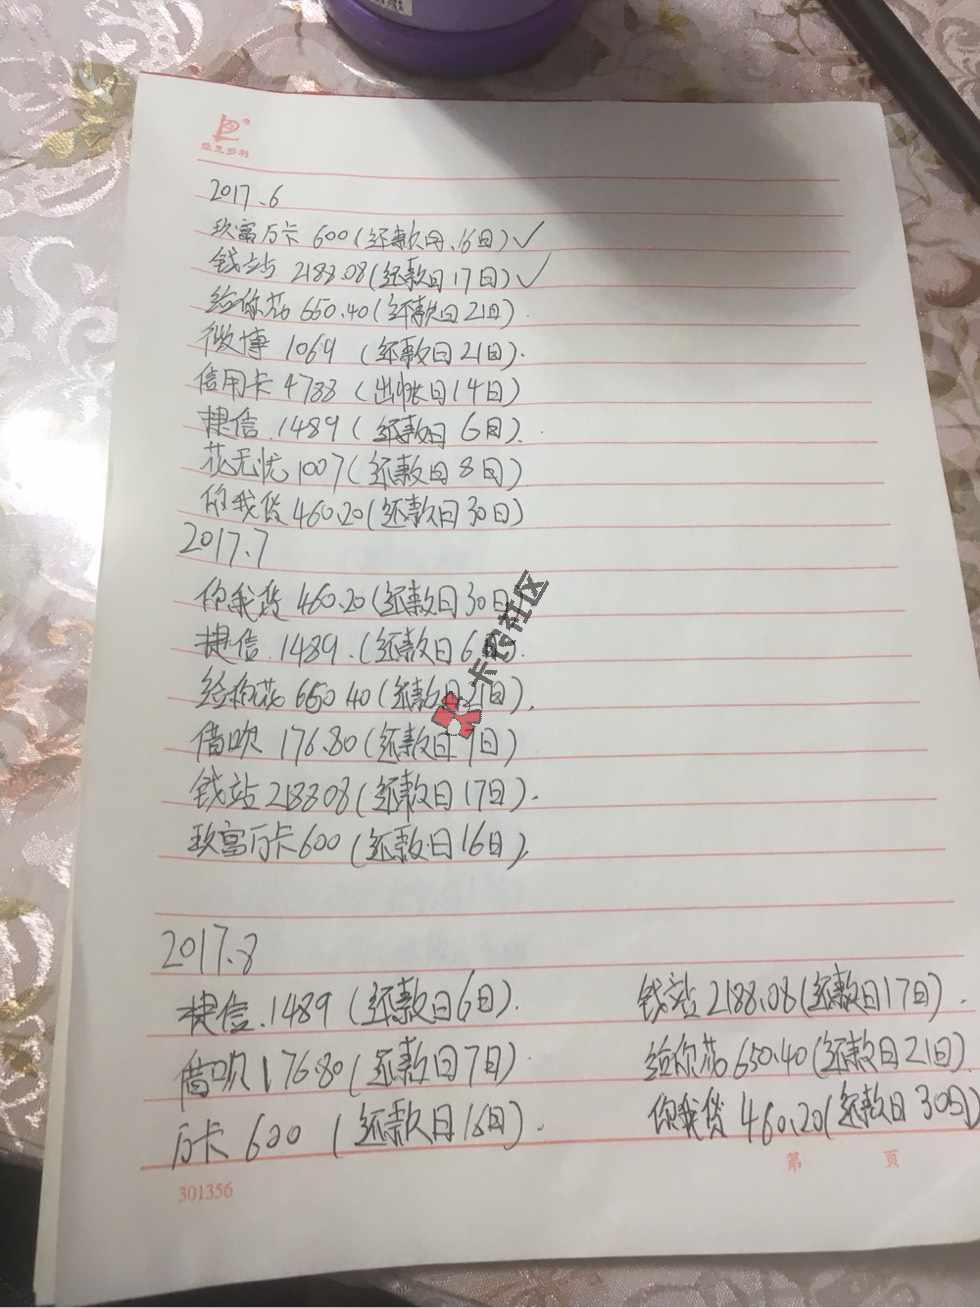 2017.6
玖富万卡 600(还款日.16日)✓
钱站 2188.08(还款日17日)✓
给你花 650.40(还款日21日).
微博 1069 (还款日21日).
信用卡 4788 (出帐日14日)
捷信.1489( 还款日 6日).
花无忧1007(还款日8日)
你我贷 460.20(还款日30日)
2017.7
你我贷 460.20(还款日30日
捷信.1489.(还款日6日).
给你花 650.40(还款日21日).
借呗 176.80(还款日7日)
钱站 2188.08(还款日17日).
玖富万卡600(还款日16日).
2017.8
捷信.1489(还款日6日).
借呗176.80(还款日7日)
万卡 600 (还款日16日).
钱站2188.08(还款日17日).
给你花650.40(还款日21日).
你我贷 460.20(还款日30日)
第 页
301356
卡农社区